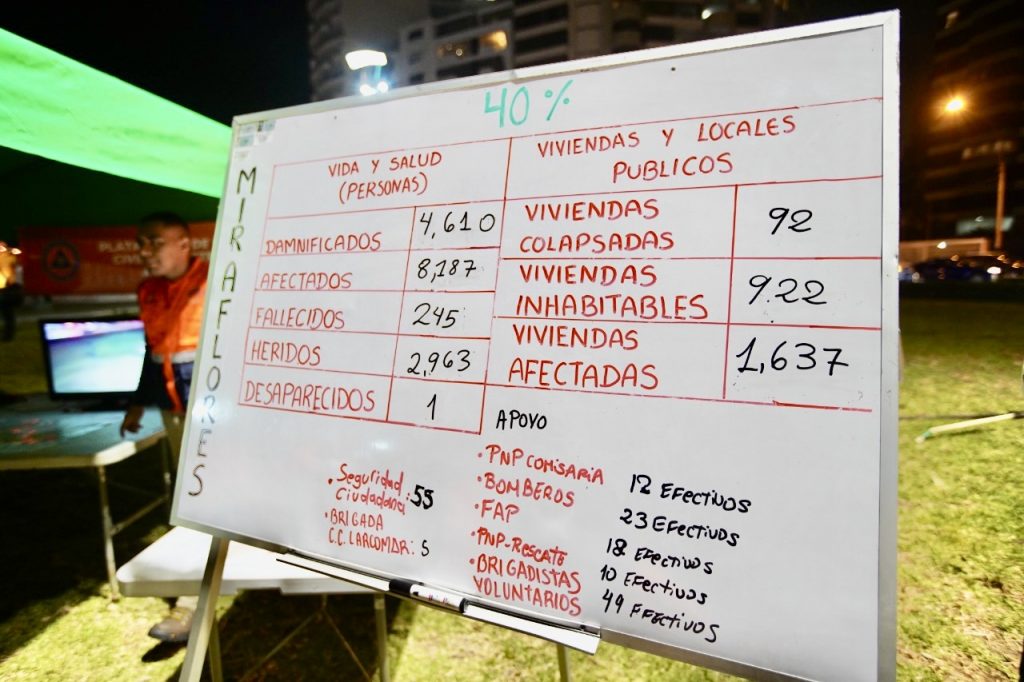 40%
MIRAFLORES
VIDA Y SALUD
(PERSONAS)
DAMNIFICADOS 4,610
AFECTADOS 8,187
FALLECIDOS 245
HERIDOS 2,963
DESAPARECIDOS 1
VIVIENDAS Y LOCALES
PUBLICOS
VIVIENDAS
COLAPSADAS 92
VIVIENDAS
INHABITABLES 922
VIVIENDAS
AFECTADAS 1,637
APOYO
• Seguridad
Ciudadana: 55
• BRIGADA
C.C. LARCOMAR: 5
• PNP COMISARIA 12 EFECTIVOS
• BOMBEROS 23 EFECTIVOS
• FAP 18 EFECTIVOS
• PNP-RESCATE 10 EFECTIVOS
• BRIGADISTAS
VOLUNTARIOS 49 EFECTIVOS